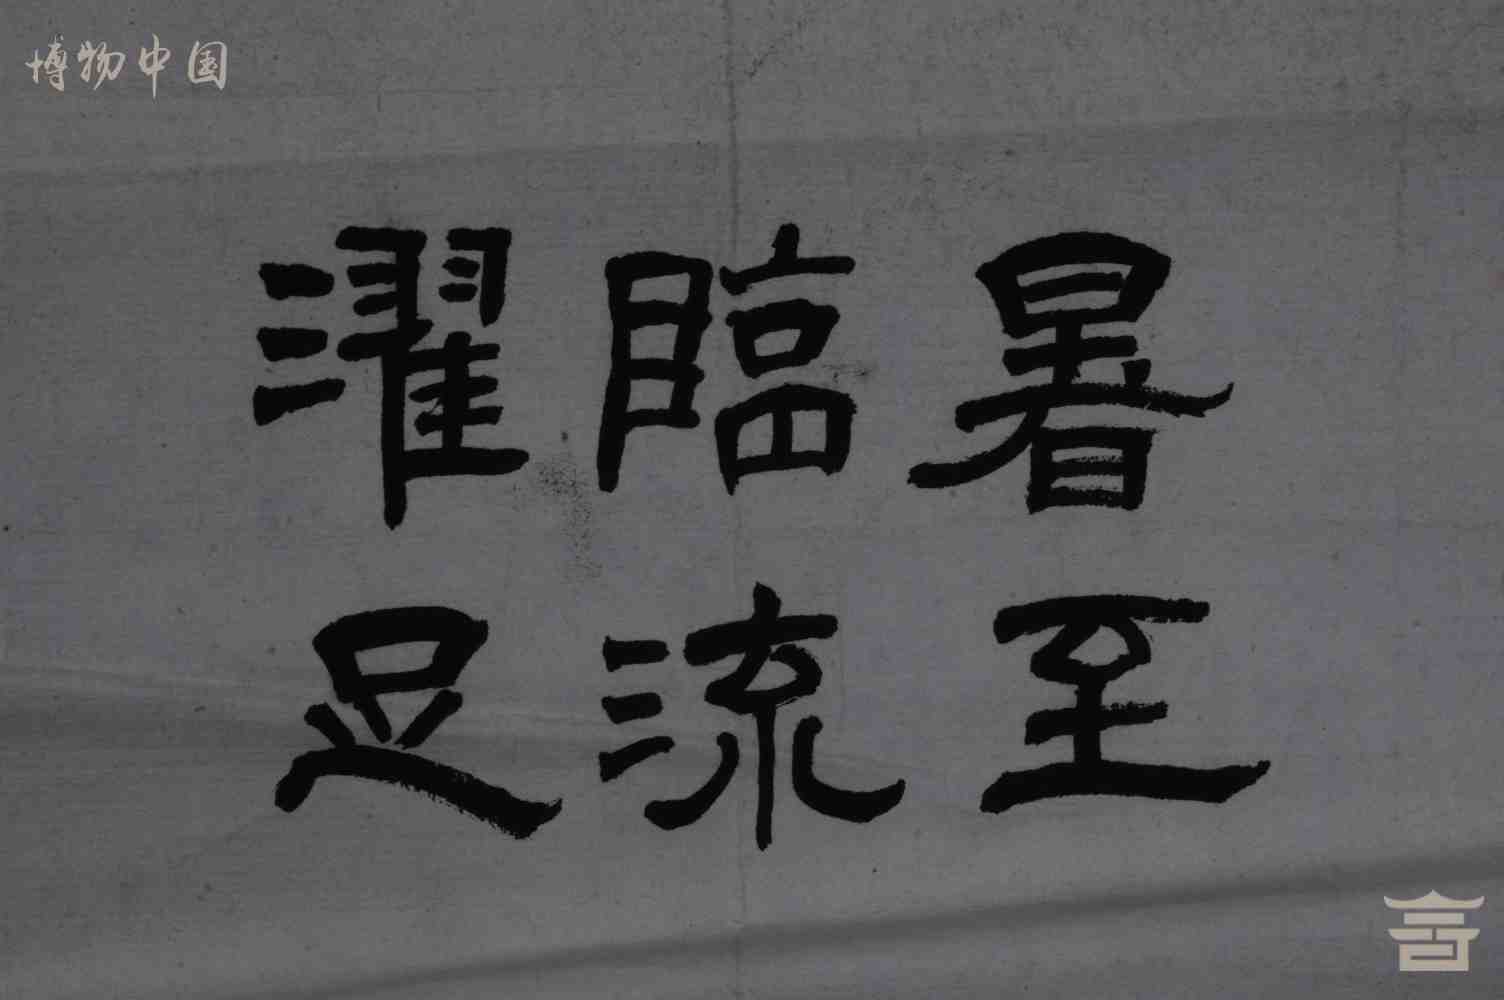 博物中国
暑至
臨流
濯足